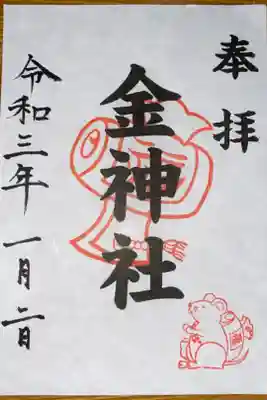 奉拝
金神社
令和三年一月二日